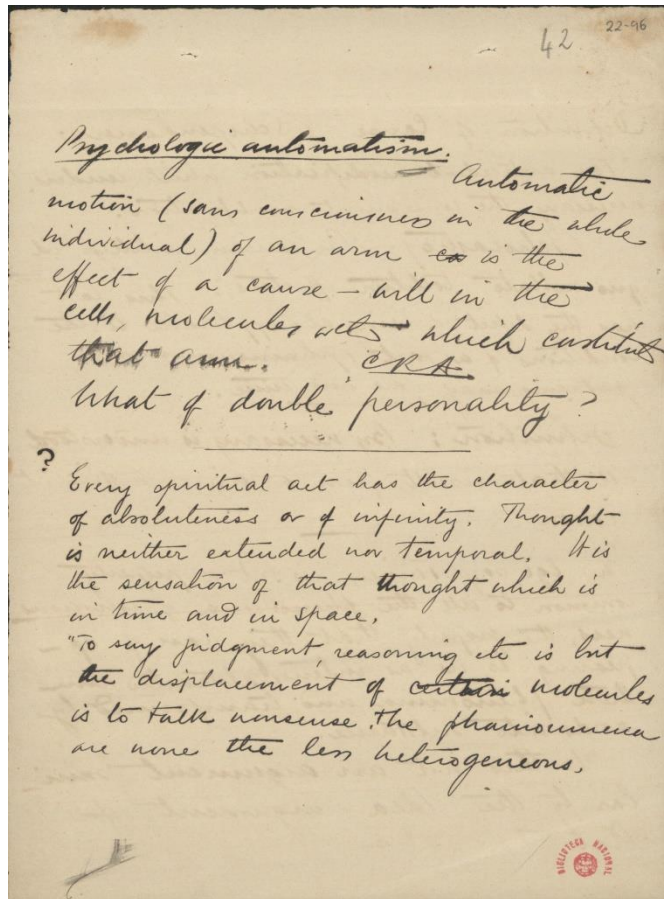 22-96
42
Psychologic automatism.
Automatic
motion (sans consciousness in the whole
individual) of an arm is the
effect of a cause — will in the
cells, molecules etc which constitute
that arm. CRA
What of double personality?
?
Every spiritual act has the character
of absoluteness or of infinity. Thought
is neither extended nor temporal. It is
the sensation of that thought which is
in time and in space.
"To say judgment, reasoning etc is but
the displacement of certain molecules
is to talk nonsense. The phainoumena
are none the less heterogeneous.
BIBLIOTECA NACIONAL